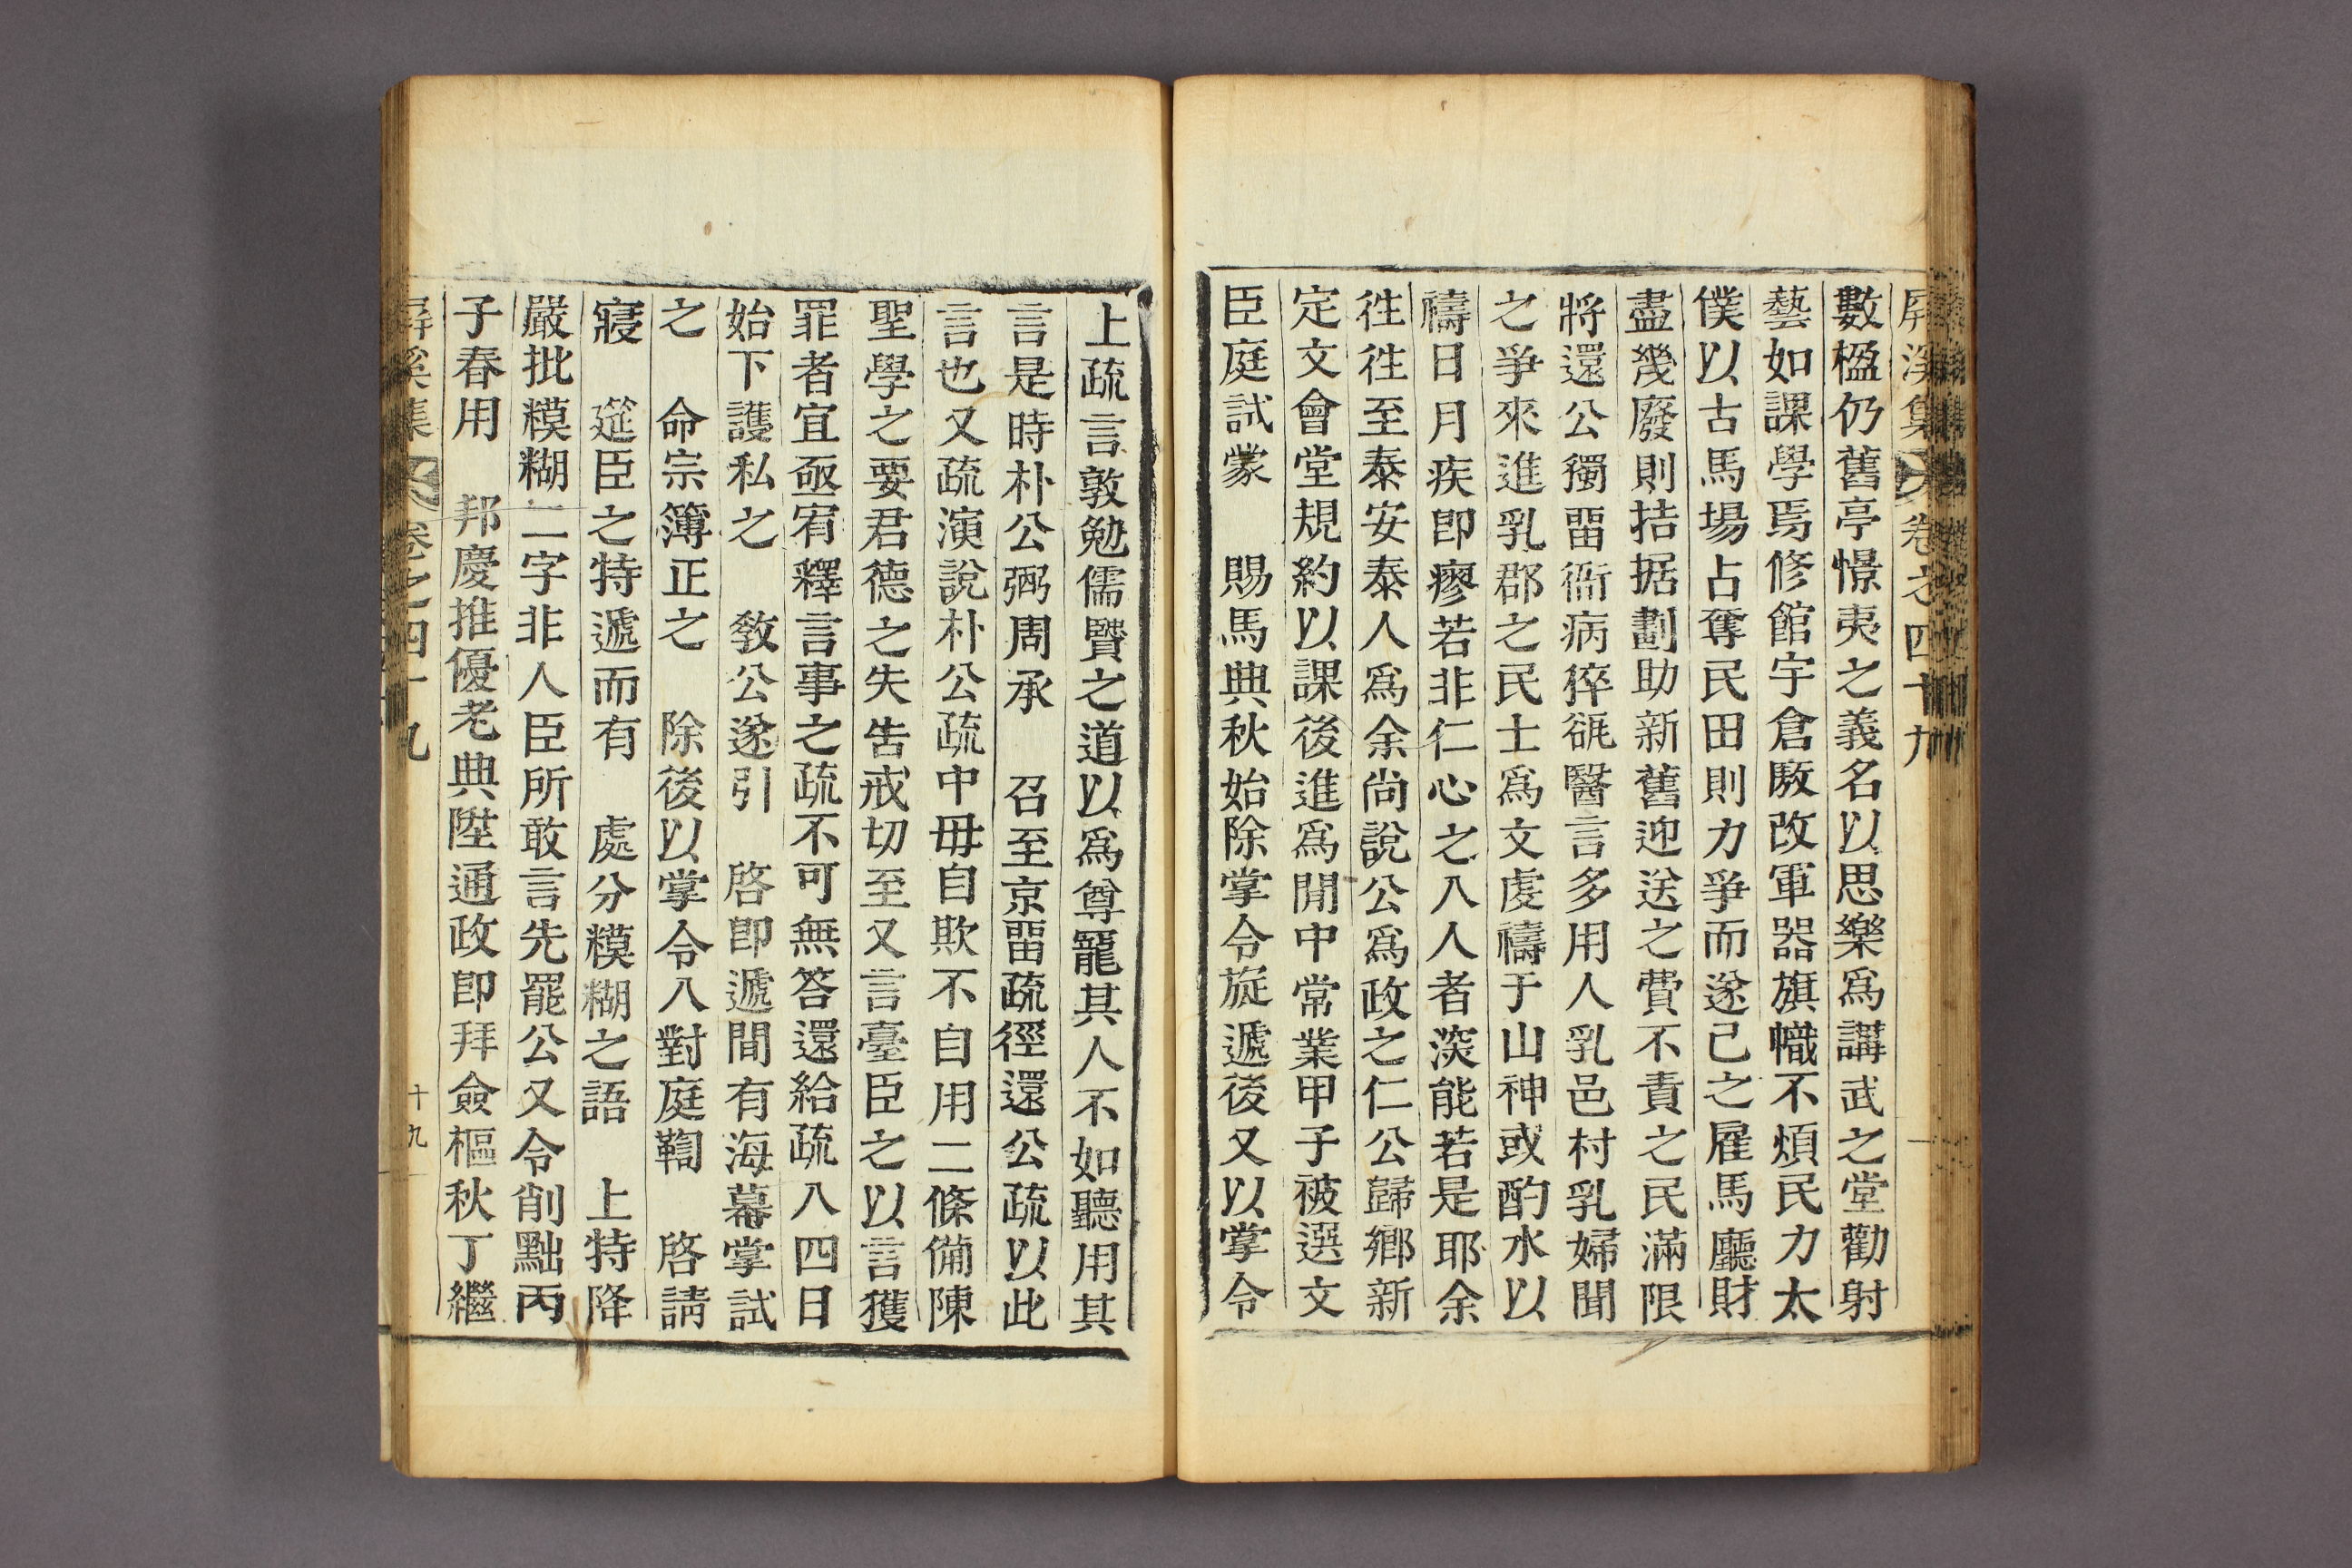 屛溪集 卷之四十九
數楹仍舊亭憬夷之義名以思樂爲講武之堂勸射
藝如課學焉修館宇倉廒改軍器旗幟不煩民力太
僕以古馬場占奪民田則力爭而遂已之雇馬廳財
盡幾廢則拮据劃助新舊迎送之費不責之民滿限
將還公獨畱衙病猝𤵜醫言多用人乳邑村乳婦聞
之爭來進乳郡之民士爲文虔禱于山神或酌水以
禱日月疾卽瘳若非仁心之入人者深能若是耶余
徃徃至泰安泰人爲余尙說公爲政之仁公歸鄕新
定文會堂規約以課後進爲閒中常業甲子被選文
臣庭試蒙 賜馬典秋始除掌令旋遞後又以掌令
上疏言敦勉儒賢之道以爲尊寵其人不如聽用其
言是時朴公弼周承 召至京畱疏徑還公疏以此
言也又疏演說朴公疏中毋自欺不自用二條備陳
聖學之要君德之失告戒切至又言臺臣之以言獲
罪者宜亟宥釋言事之疏不可無答還給疏八四日
始下護私之 敎公遂引 啓卽遞間有海幕掌試
之 命宗簿正之 除後以掌令入對庭鞫 啓請
寢 筵臣之特遞而有 處分糢糊之語 上特降
嚴批糢糊二字非人臣所敢言先罷公又令削黜丙
子春用 邦慶推優老典陞通政卽拜僉樞秋丁繼
屛溪集 卷之四十九 十九